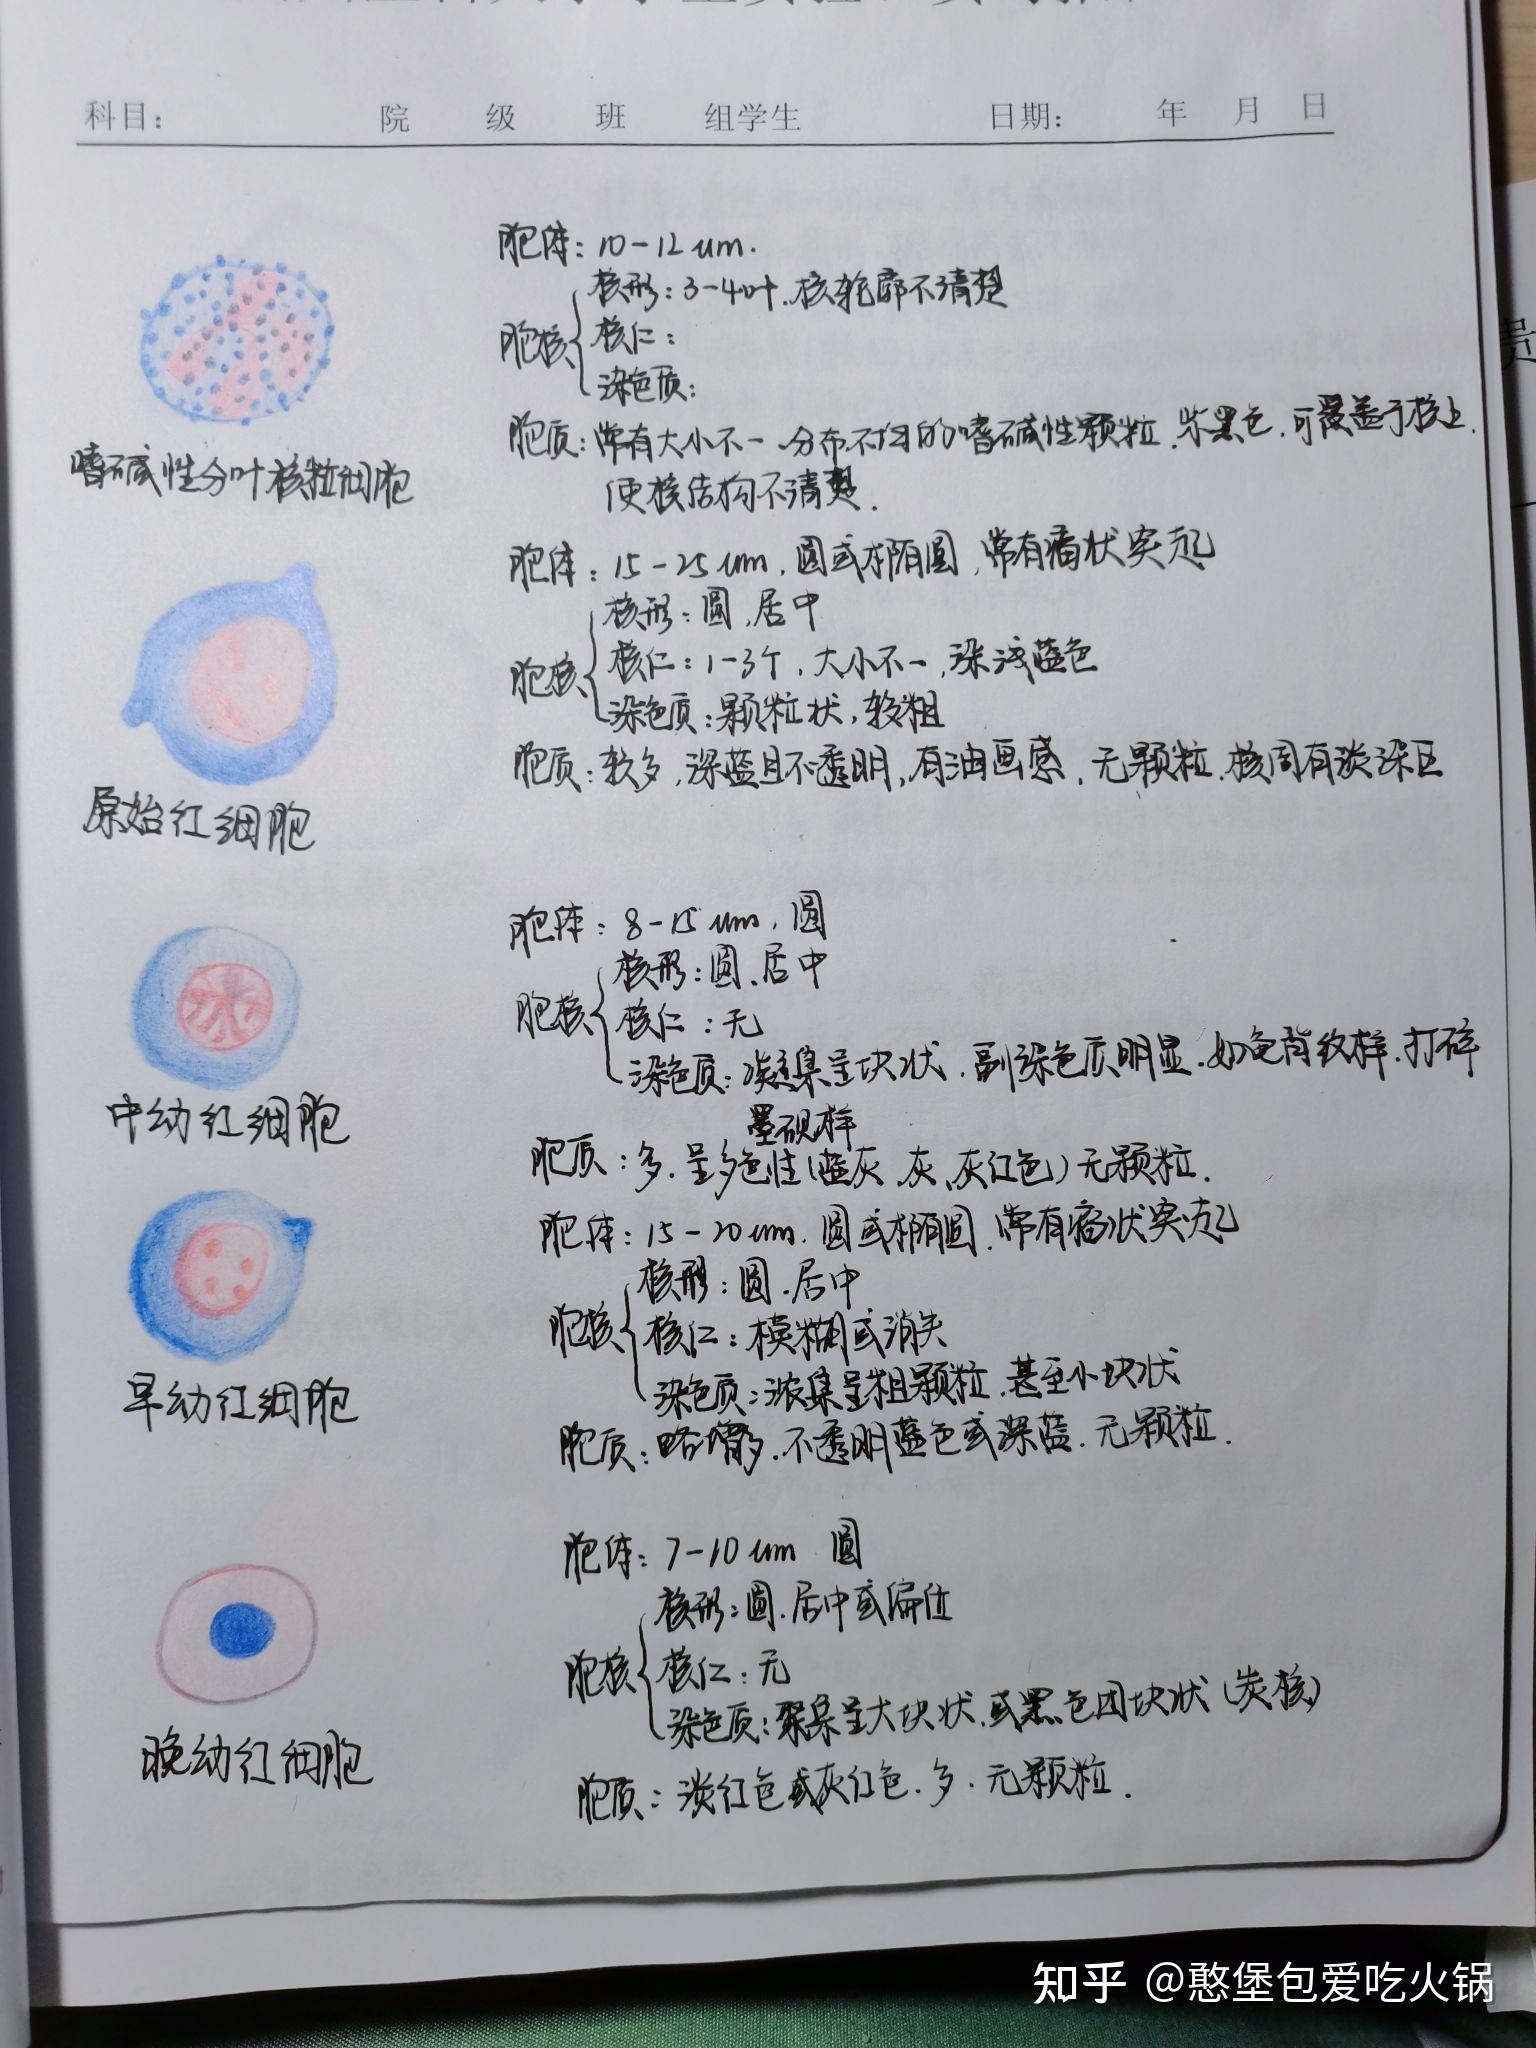 科目： 院 级 班 组学生 日期： 年 月 日
胞体：10-12um.
核形：3-4叶.核轮廓不清楚
胞核
核仁：
染色质：
胞质：常有大小不一.分布不均的嗜碱性颗粒.紫黑色.可覆盖于核上.
使核结构不清楚.
嗜碱性分叶核粒细胞
胞体：15-25um.圆或椭圆,常有瘤状突起
核形：圆,居中
胞核
核仁：1-3个,大小不一,染浅蓝色
染色质：颗粒状,较粗
胞质：较多,深蓝且不透明,有油画感.无颗粒.核周有淡染区
原始红细胞
胞体：8-15um.圆
核形：圆.居中
胞核
核仁：无
染色质：凝集呈块状.副染色质明显.如龟背纹样.打碎
墨砚样
胞质：多.呈多色性(蓝灰.灰.灰红色)无颗粒.
中幼红细胞
胞体：15-20um.圆或椭圆.常有瘤状突起
核形：圆.居中
胞核
核仁：模糊或消失
染色质：浓集呈粗颗粒.甚至小块状
胞质：略增多.不透明蓝色或深蓝.无颗粒.
早幼红细胞
胞体：7-10um 圆
核形：圆.居中或偏位
胞核
核仁：无
染色质：聚集呈大块状.或黑色团块状(炭核)
胞质：淡红色或灰红色.多.无颗粒.
晚幼红细胞
知乎 @憨堡包爱吃火锅